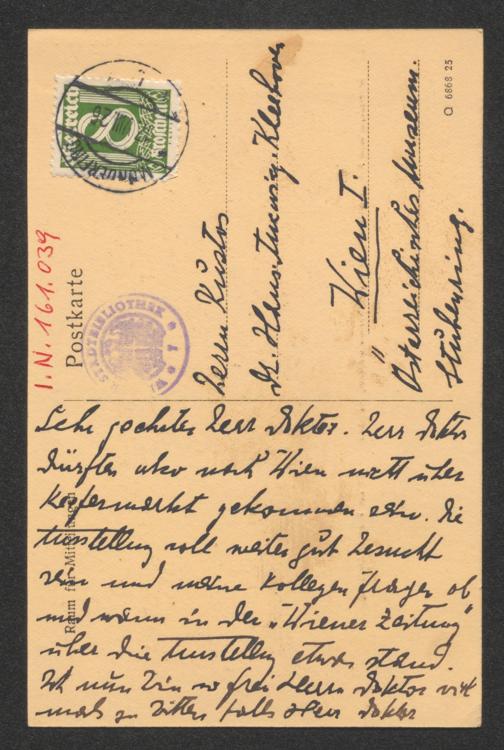 Q 6868 25
8 Groschen
I.N. 161.039
Postkarte
STADTBIBLIOTHEK
Herrn Kustos
Dr. Hans
Wien I.
Österreichisches Museum.
Stubenring.
Raum für Mitteilungen
Sehr geehrter Herr Doktor. Herr Doktor
dürften also nach Wien nicht über
Kefermarkt gekommen sein. Die
Ausstellung soll weiter gut besucht
sein und meine Kollegen fragen ob
und wann in der „Wiener Zeitung"
über die Ausstellung etwas stand.
Ich nun bin so frei Herrn Doktor viel
mals zu bitten falls Herr Doktor